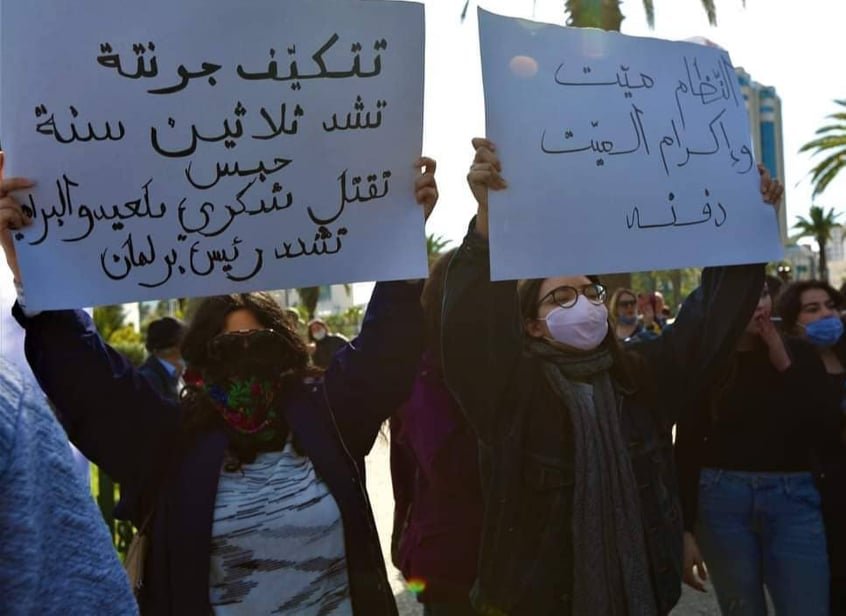 تتكيّف جرنتة
تشد ثلاثين سنة
حبس
تقتل شكري بلعيد والبراهمي
تشد رئيس برلمان
النّظام ميّت
وإكرام الميّت
دفنه